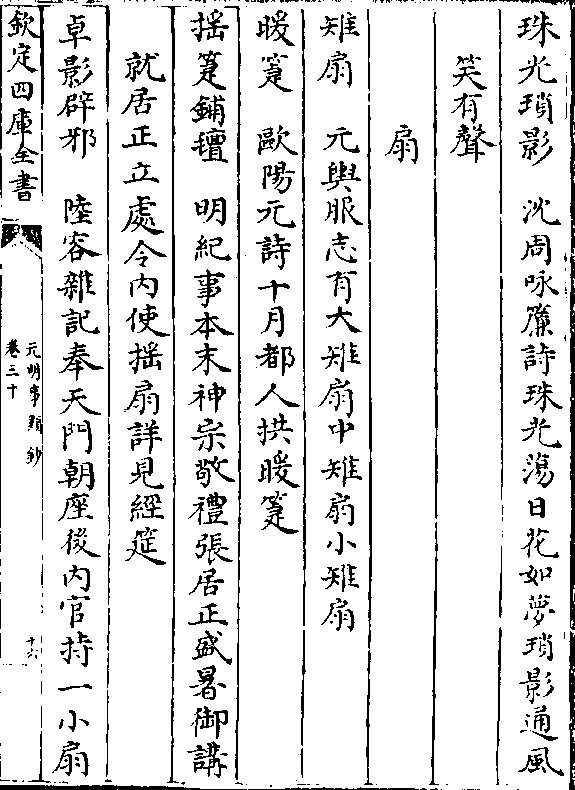 珠光瑣影　沈周咏簾詩珠光蕩日花如夢瑣影通風
笑有聲
扇
雉扇　元輿服志有大雉扇中雉扇小雉扇
暖箑　歐陽元詩十月都人拱暖箑
揺箑鋪氊　明紀事本末神宗敬禮張居正盛暑御講
就居正立處令内使揺扇詳見經筵
卓影辟邪　陸容雜記奉天門朝座後内官持一小扇
欽定四庫全書
元明事類鈔
卷三十
十六